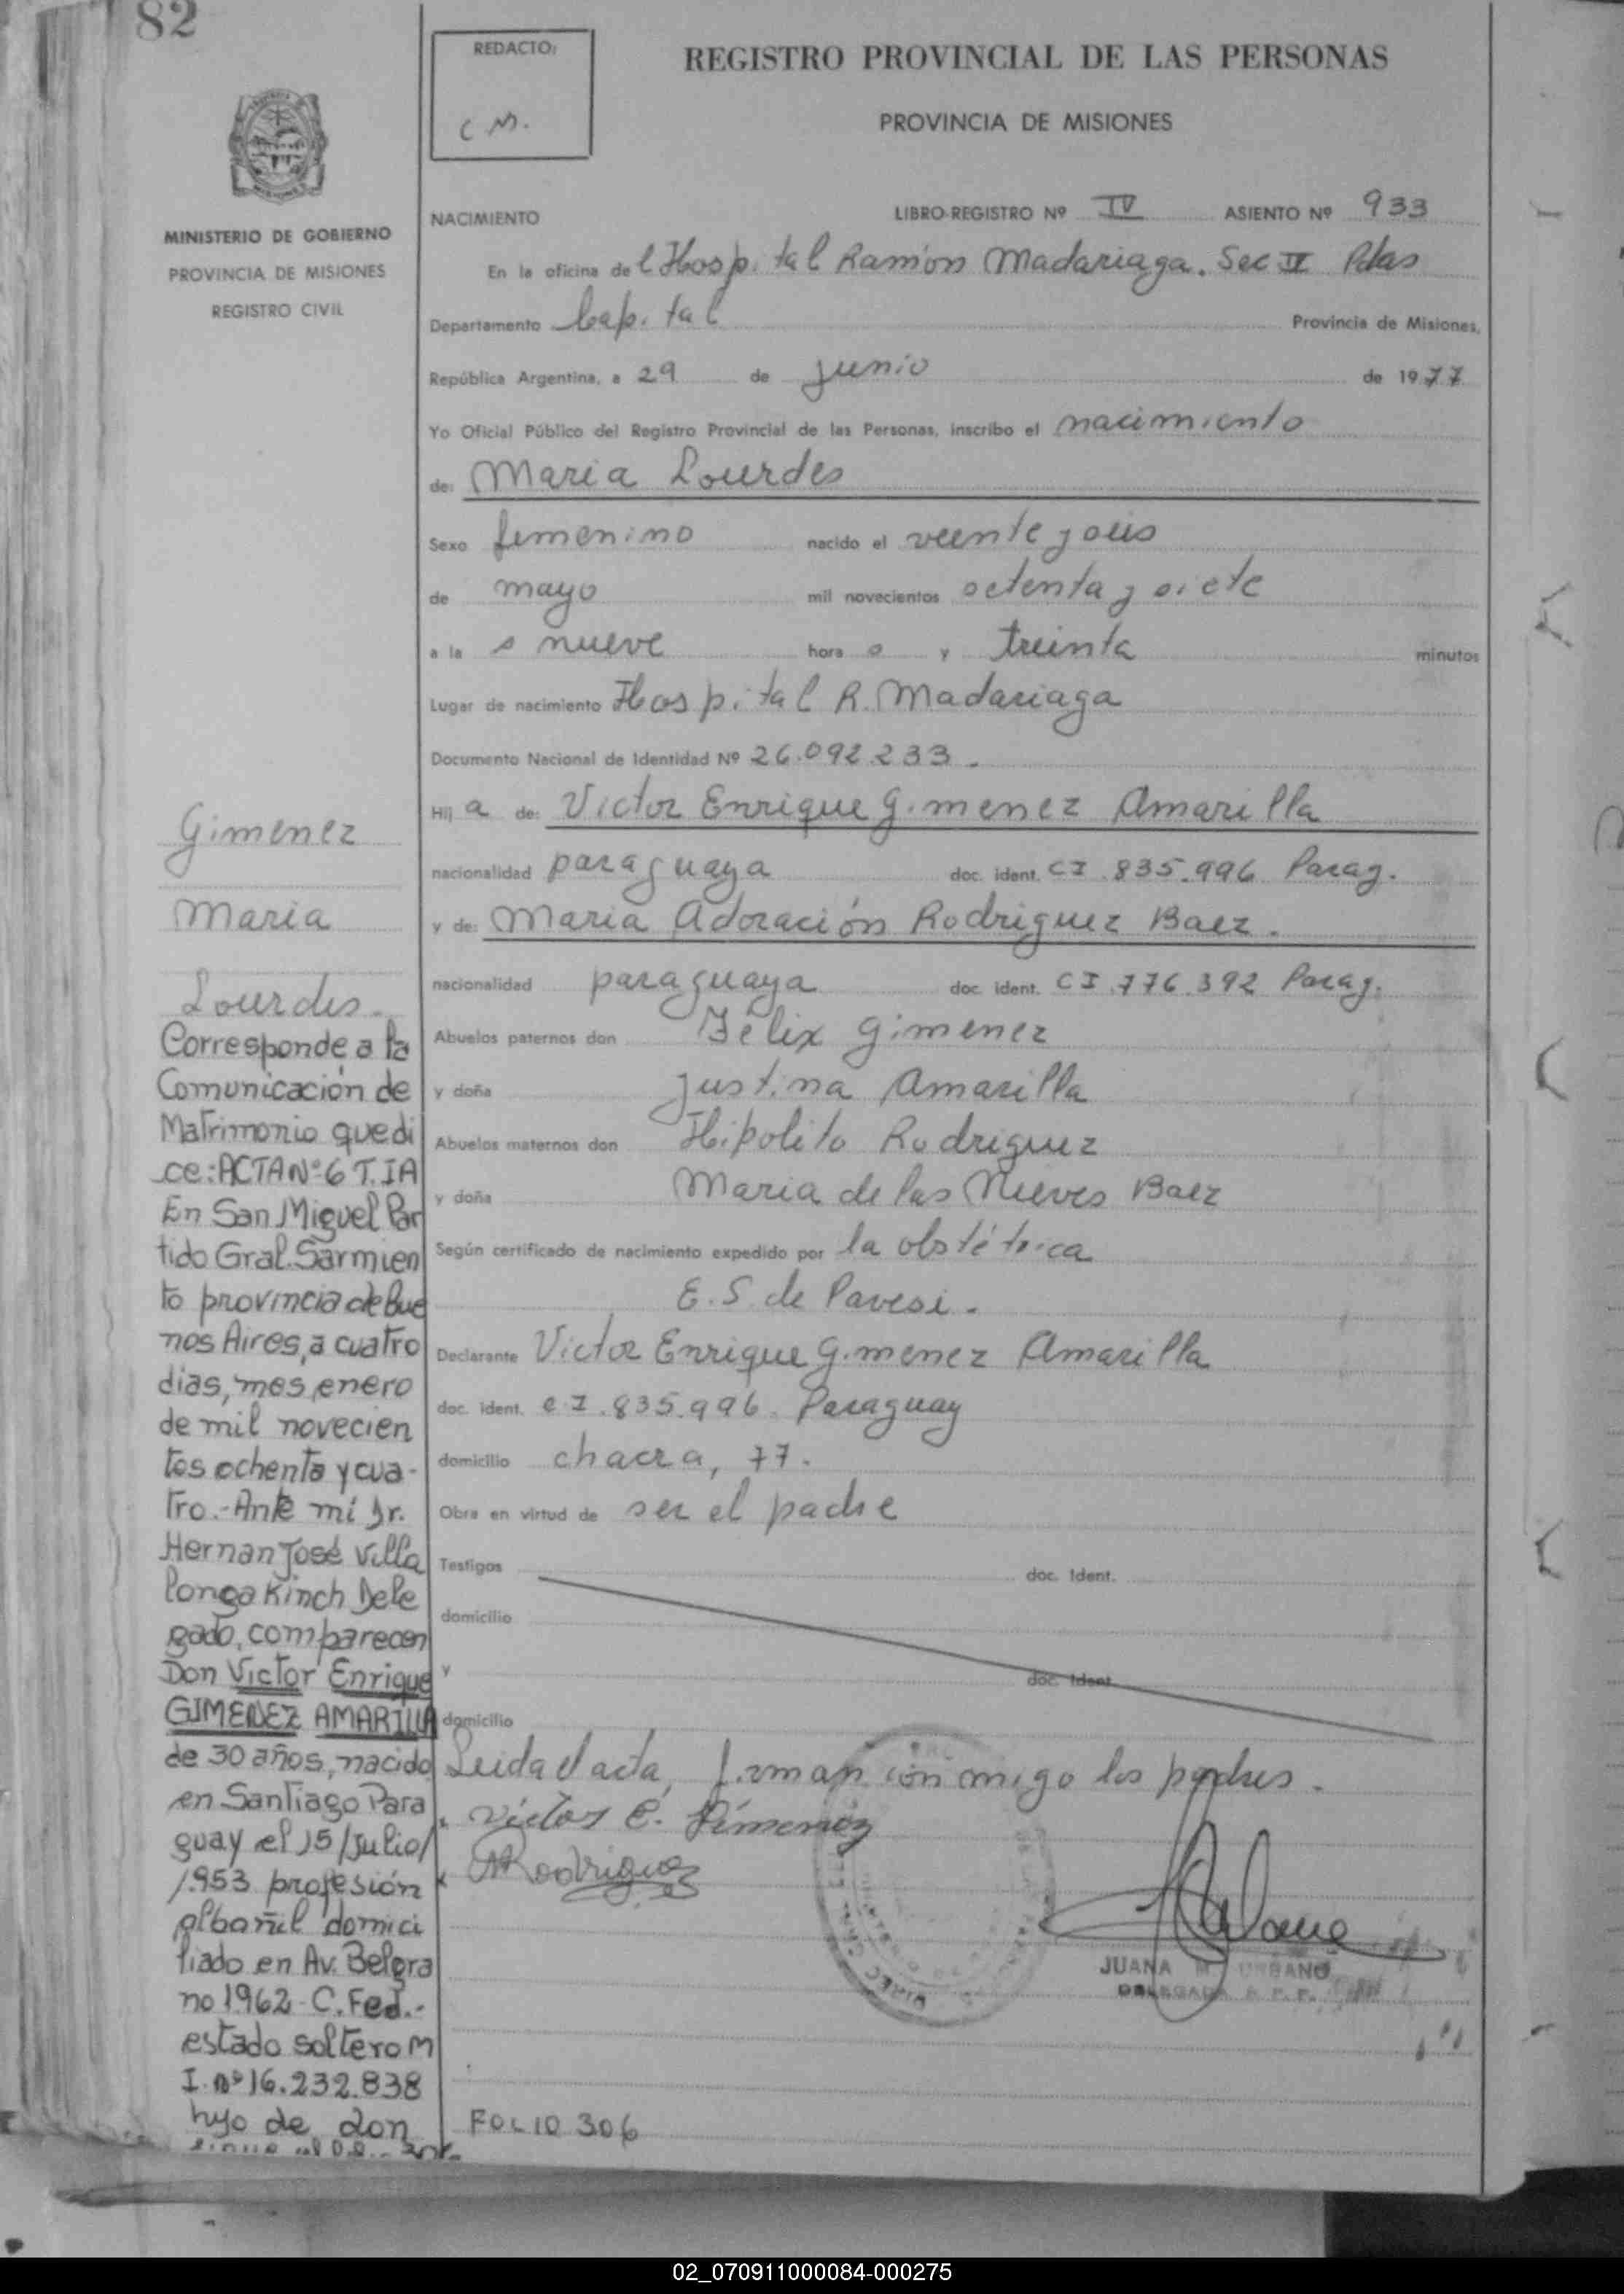 82
REDACTO:
C M.
REGISTRO PROVINCIAL DE LAS PERSONAS
PROVINCIA DE MISIONES
MINISTERIO DE GOBIERNO
PROVINCIA DE MISIONES
REGISTRO CIVIL
NACIMIENTO
LIBRO-REGISTRO Nº IV ASIENTO Nº 933
En la oficina del Hospital Ramón Madariaga. Sec II Pdas
Departamento Capital Provincia de Misiones,
República Argentina, a 29 de junio de 1977
Yo Oficial Público del Registro Provincial de las Personas, inscribo el nacimiento
de: Maria Lourdes
Sexo femenino nacido el veinte y seis
de mayo mil novecientos setenta y siete
a la s nueve hora s y treinta minutos
Lugar de nacimiento Hospital R. Madariaga
Documento Nacional de Identidad Nº 26.092.233.
Hij a de: Victor Enrique Gimenez Amarilla
nacionalidad paraguaya doc. ident. CI 835.996 Parag.
y de: Maria Adoración Rodriguez Baez.
nacionalidad paraguaya doc. ident. CI.776.392 Parag.
Abuelos paternos don Félix Gimenez
y doña Justina Amarilla
Abuelos maternos don Hipolito Rodriguez
y doña Maria de las Nieves Baez
Según certificado de nacimiento expedido por la obstétrica
E. S. de Pavesi.
Declarante Victor Enrique Gimenez Amarilla
doc. ident. CI.835.996. Paraguay
domicilio chacra, 77.
Obra en virtud de ser el padre
Testigos doc. Ident.
domicilio
y doc. Ident
domicilio
Leida el acta, firman con migo los padres.
x Victor E. Gimenez
x MRodriguez
JUANA M. URBANO
DELEGADA
FOLIO 306
Gimenez
Maria
Lourdes.
Corresponde a la
Comunicación de
Matrimonio que di
ce: ACTA Nº 6 T. IA
En San Miguel Par
tido Gral. Sarmien
to provincia de Bue
nos Aires, a cuatro
dias, mes enero
de mil novecien
tos ochenta y cua-
tro.- Ante mí Dr.
Hernan José Villa
longa Kinch Dele
gado, comparecen
Don Victor Enrique
GIMENEZ AMARILLA
de 30 años, nacido
en Santiago Para
guay el 15/Julio/
1.953 profesión
albañil domici
liado en Av. Belgra
no 1962 - C. Fed.-
estado soltero M
I. nº 16.232.838
hijo de don
02_070911000084-000275